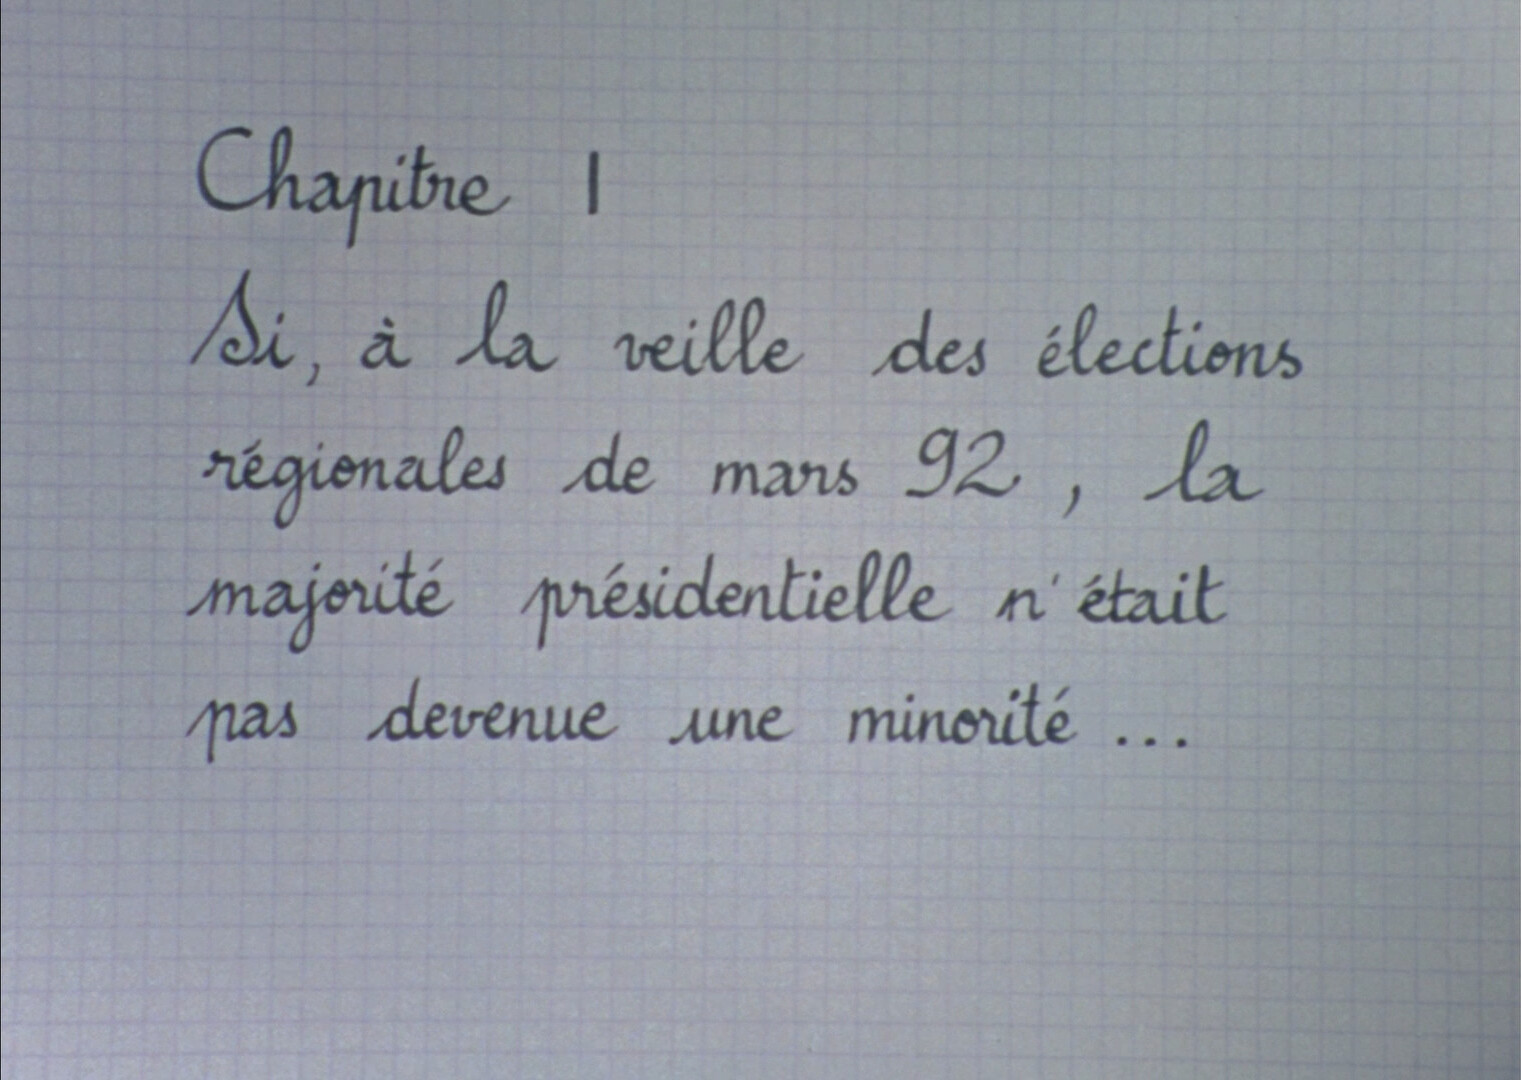 Chapitre 1
Si, à la veille des élections
régionales de mars 92, la
majorité présidentielle n'était
pas devenue une minorité ...